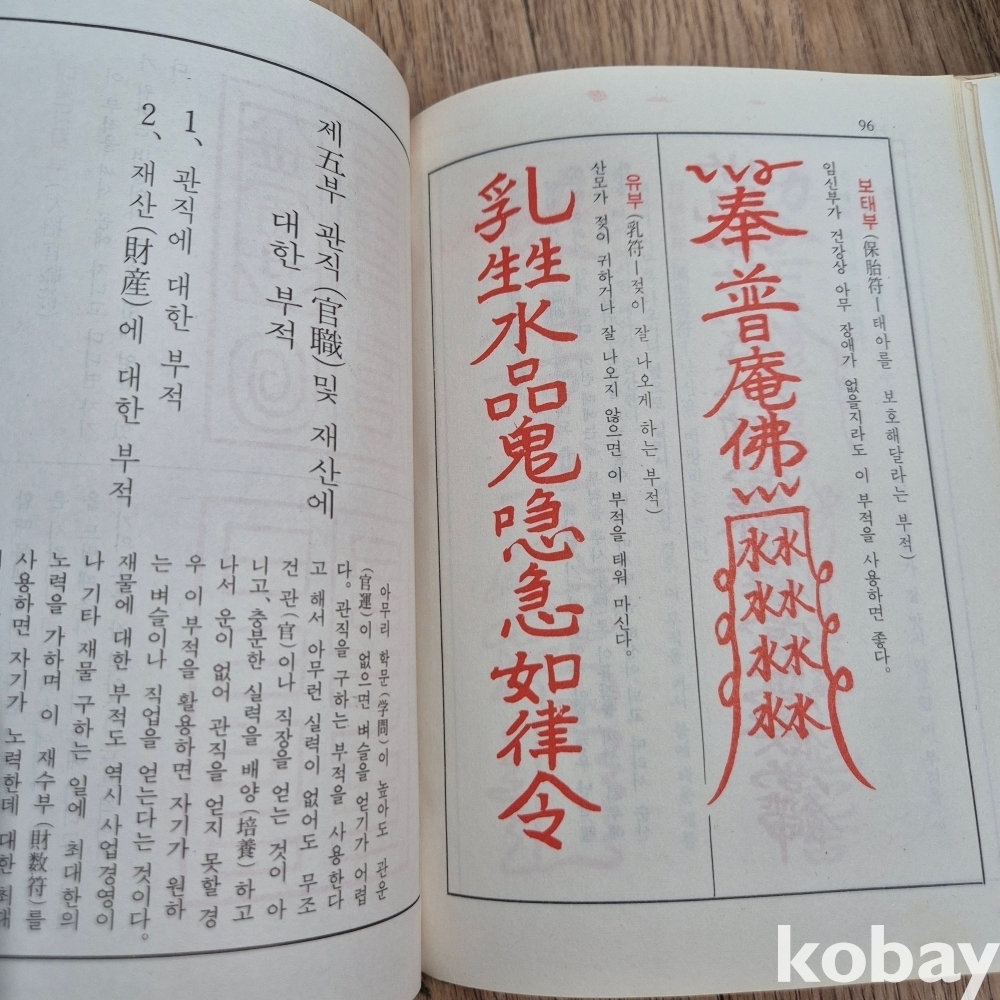 96
보태부(保胎符—태아를 보호해달라는 부적)
임신부가 건강상 아무 장애가 없을지라도 이 부적을 사용하면 좋다。
奉普庵佛
水水
水水
水水
水水
유부(乳符—젖이 잘 나오게 하는 부적)
산모가 젖이 귀하거나 잘 나오지 않으면 이 부적을 태워 마신다。
乳生生水品鬼噫急如律令
제五부 관직(官職)및 재산에
대한 부적
1、관직에 대한 부적
2、재산(財産)에 대한 부적
아무리 학문(学問)이 높아도 관운
(官運)이 없으면 벼슬을 얻기가 어렵
다。관직을 구하는 부적을 사용한다
고 해서 아무런 실력이 없어도 무조
건 관(官)이나 직장을 얻는 것이 아
니고、충분한 실력을 배양(培養)하고
나서 운이 없어 관직을 얻지 못할 경
우 이 부적을 활용하면 자기가 원하
는 벼슬이나 직업을 얻는다는 것이다。
재물에 대한 부적도 역시 사업경영이
나 기타 재물 구하는 일에 최대한의
노력을 가하며 이 재수부(財数符)를
사용하면 자기가 노력한데 대한 최대
kobay